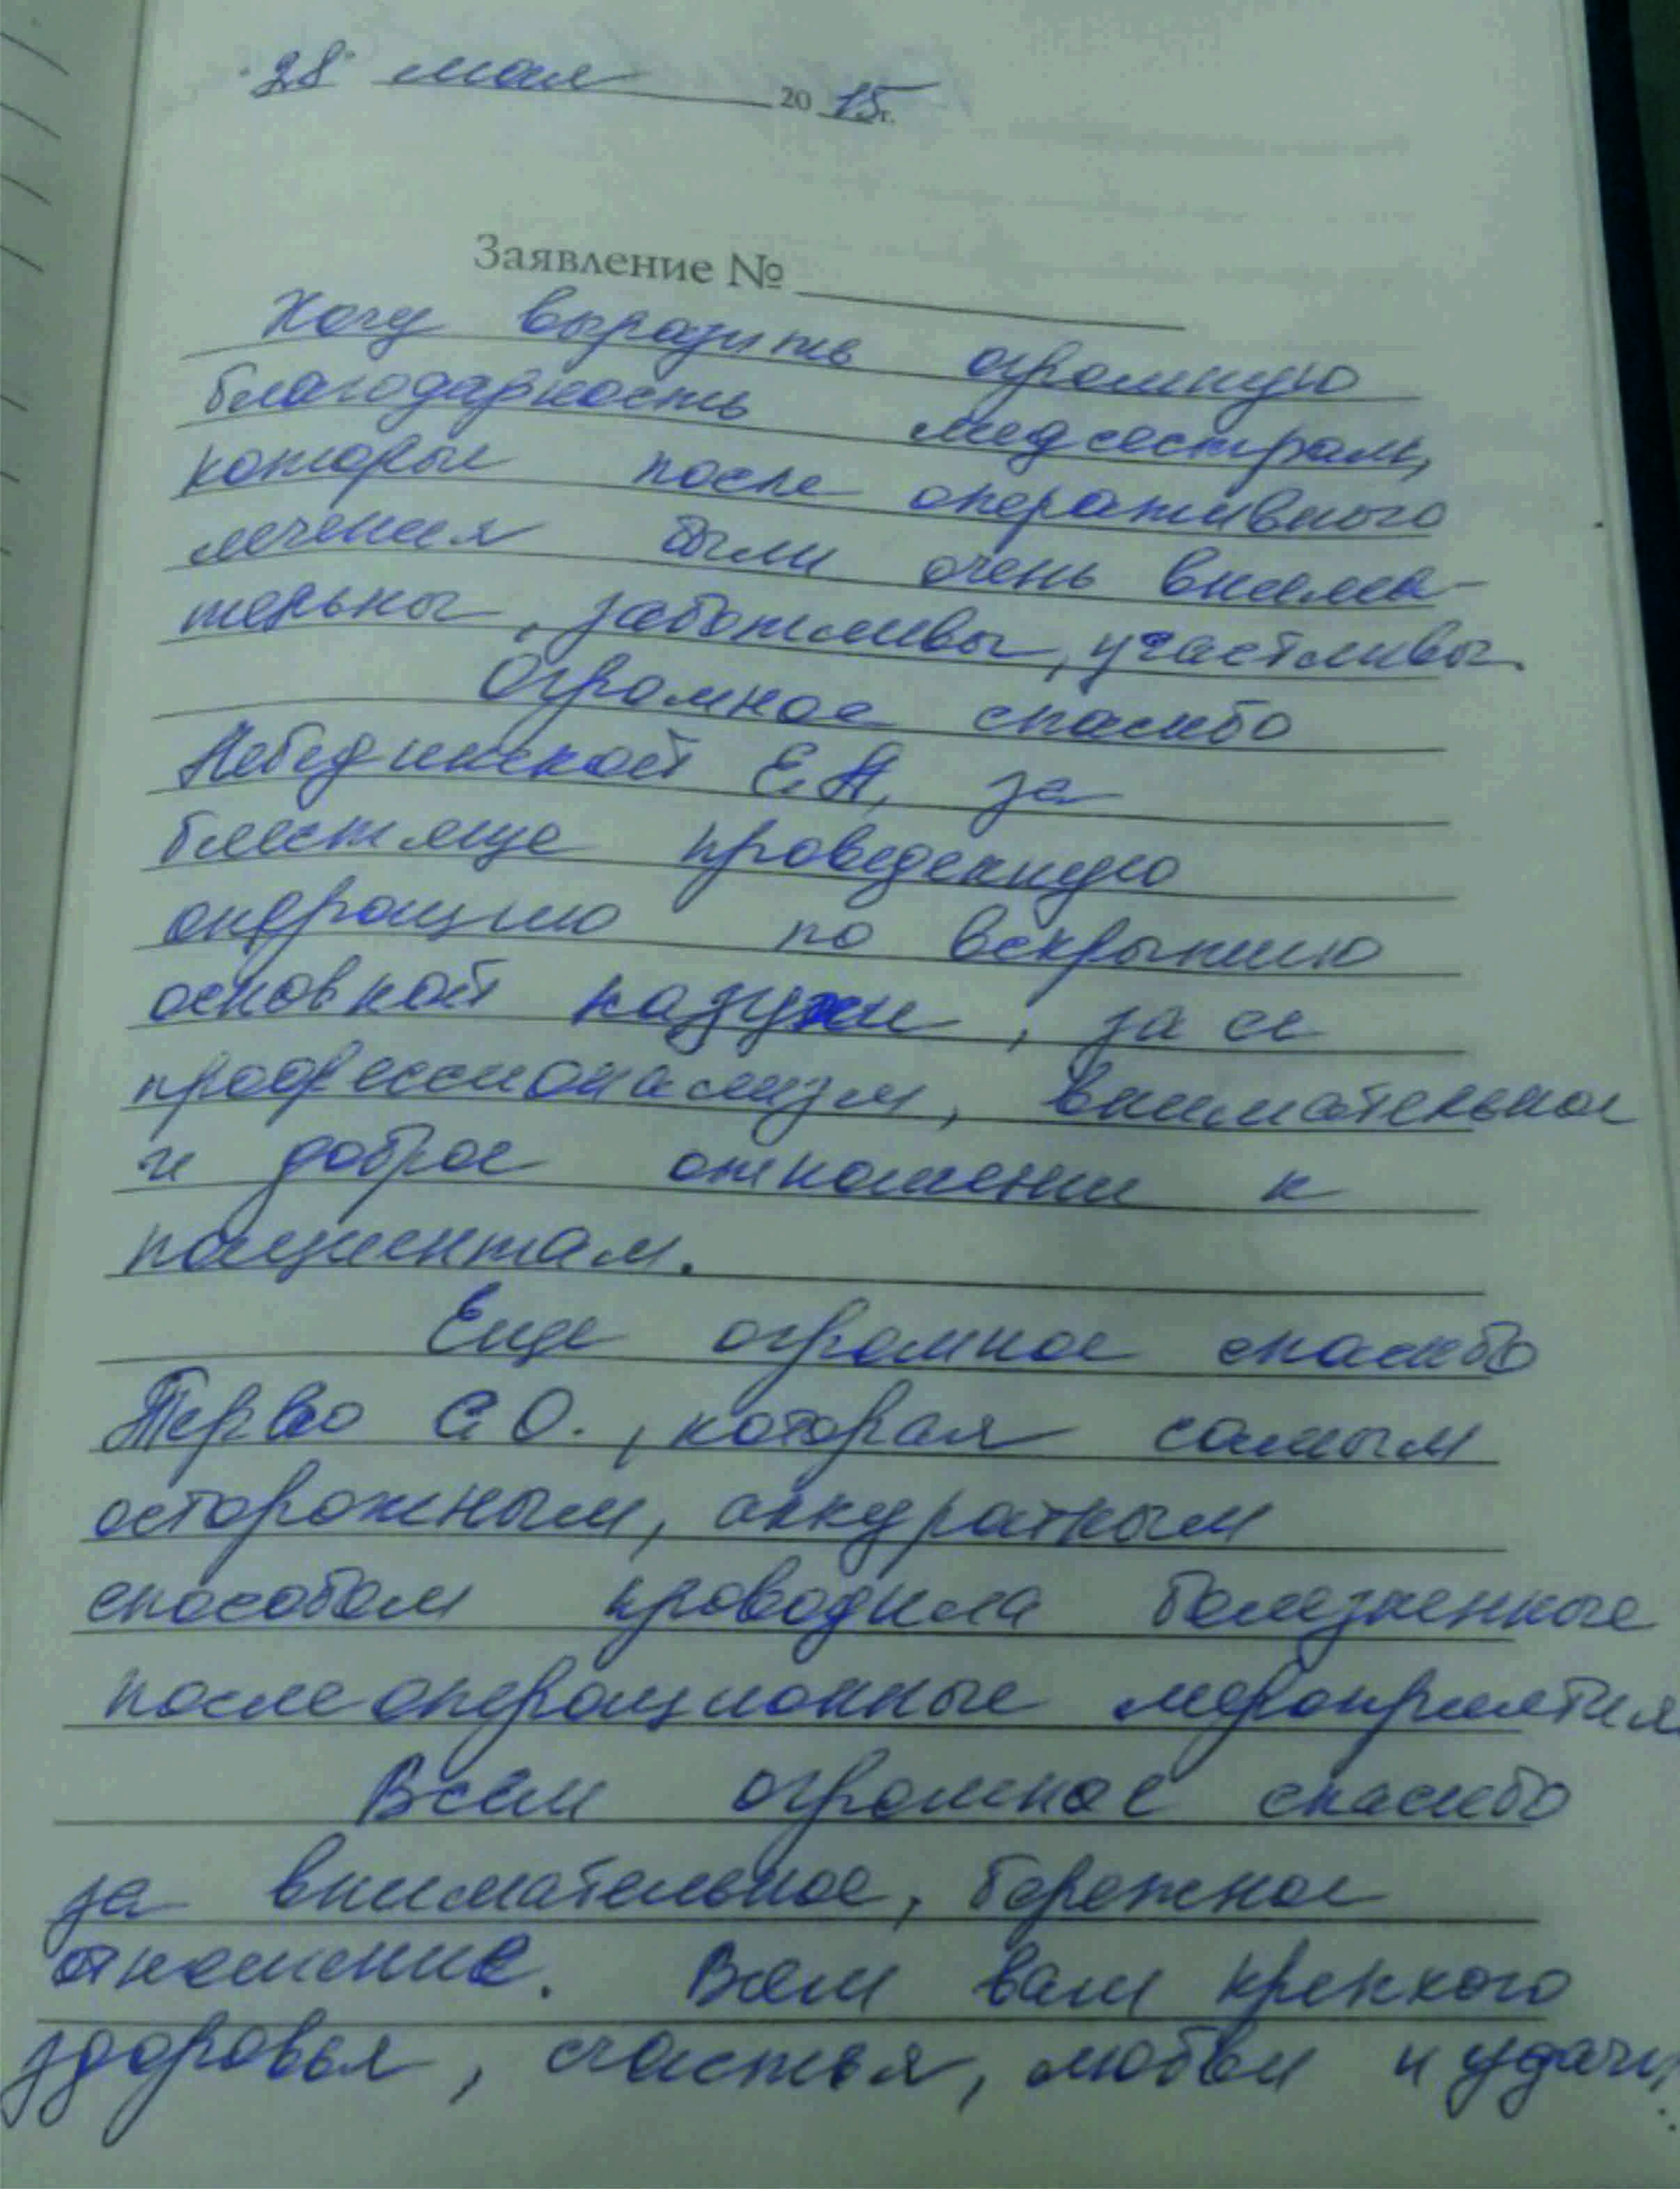 28 мая 2015г.
Заявление №
Хочу выразить огромную
благодарность медсестрам,
которые после оперативного
лечения были очень внима-
тельны, заботливы, участливы.
Огромное спасибо
Лебединской Е.А, за
блестяще проведенную
операцию по вскрытию
основной пазухи, за ее
профессионализм, внимательное
и доброе отношении к
пациентам.
Еще огромное спасибо
Терво С.О., которая самым
осторожным, аккуратным
способом проводила болезненные
послеоперационные мероприятия
Всем огромное спасибо
за внимательное, бережное
отношение. Всем вам крепкого
здоровья, счастья, любви и удачи